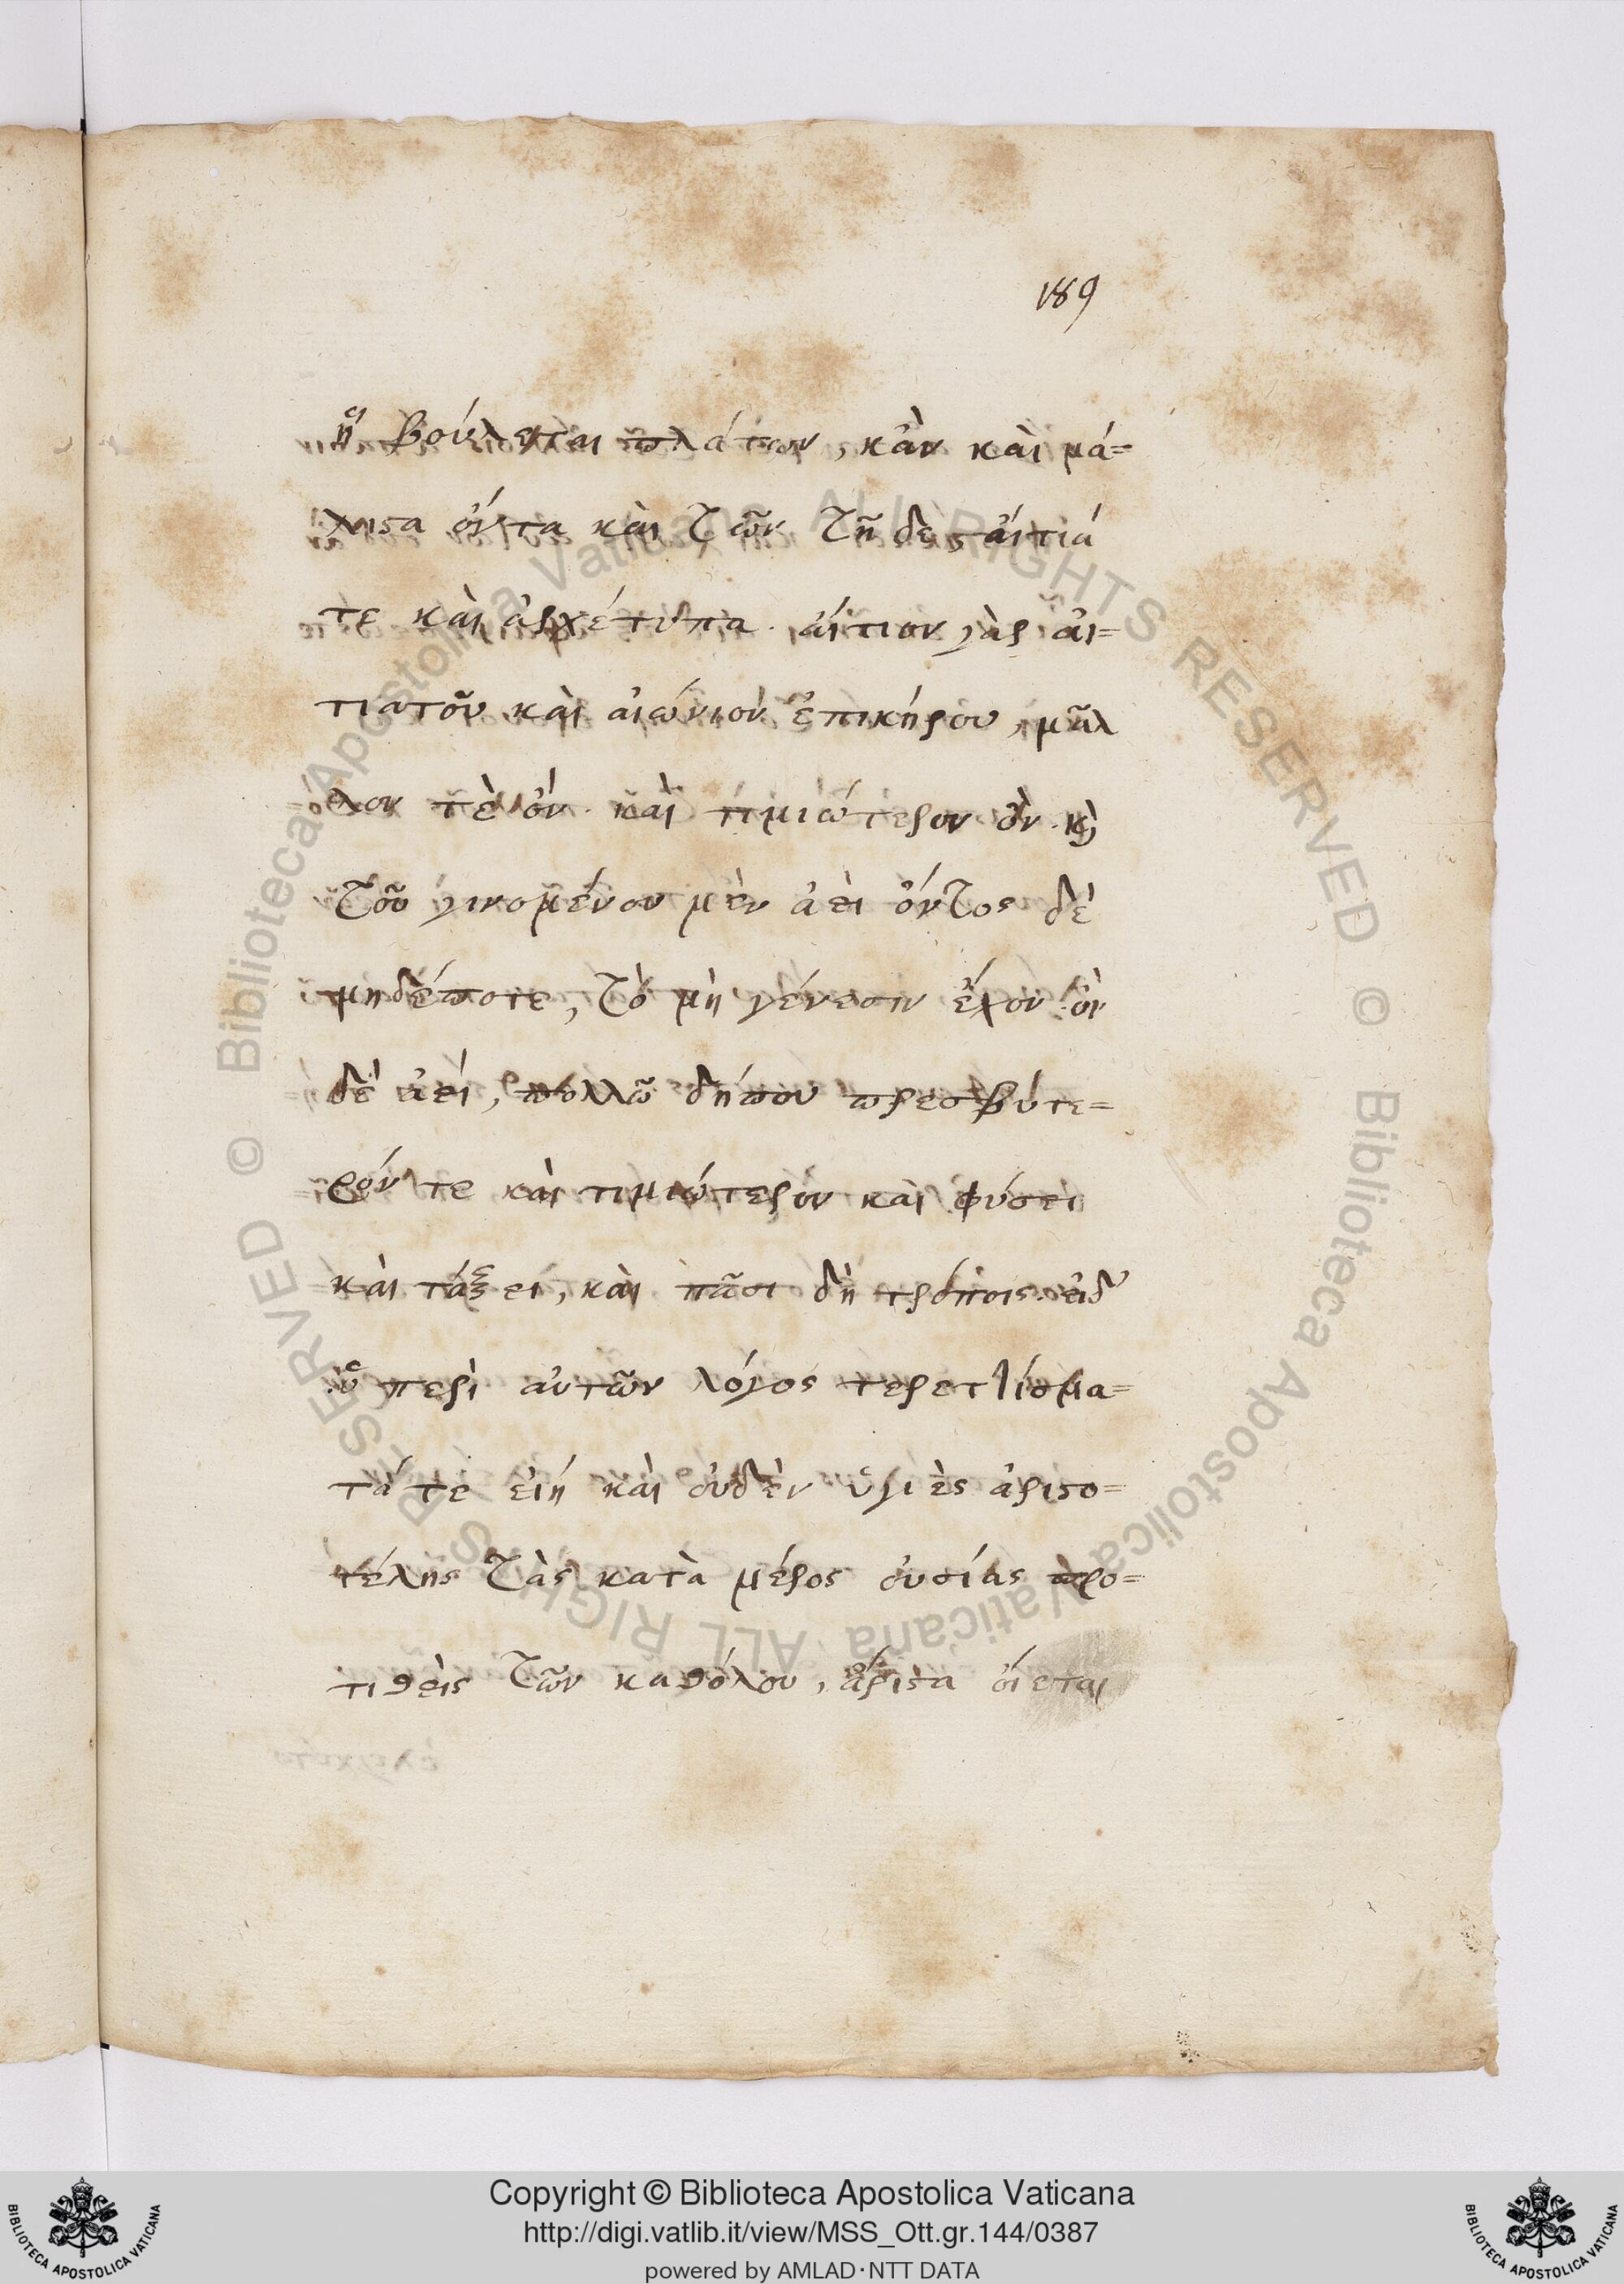 189
ἣ βούλεται πλάτων, κἂν καὶ μά=
λιστα ὄντα καὶ τῶν τῇδε, ἄιτιά
τε καὶ ἀρχέτυπα. ἄιτιον γὰρ ἀι=
τιατοῦ καὶ αἰώνιον ἐπικήρου, μᾶλ
λον τὲ ὂν. καὶ τιμιώτερον ὂν. κὶ
τοῦ γινομένου μὲν ἀεὶ ὄντος δὲ
μηδέποτε, τὸ μὴ γένεσιν ἔχον ὂν
δὲ ἀεί, πολλῶ δήπου πρεσβύτε=
ρόν τε καὶ τιμιώτερον καὶ φύσει
καὶ τάξει, καὶ πᾶσι δὴ τρόποις. ἐιδ'
ὁ περὶ αὐτῶν λόγος τερετίσμα=
τά τε ἐίη καὶ ὀυδὲν ὑγιὲς ἀριστο=
τέλης τὰς κατὰ μέρος ὀυσίας προ=
τιθεὶς τῶν καθόλου, ἄριστα ὄιεται
Copyright © Biblioteca Apostolica Vaticana
http://digi.vatlib.it/view/MSS_Ott.gr.144/0387
powered by AMLAD·NTT DATA
© Biblioteca Apostolica Vaticana ALL RIGHTS RESERVED © Biblioteca Apostolica Vaticana ALL RIGHTS RESERVED
BIBLIOTECA APOSTOLICA VATICANA
BIBLIOTECA APOSTOLICA VATICANA